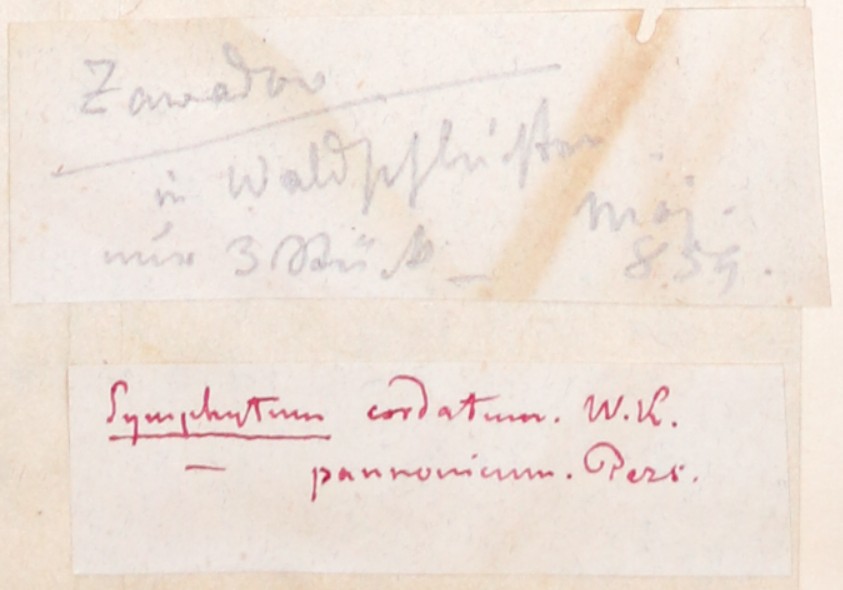 Zawadow
in Waldschluchten
Maj.
nur 3 Stück _ 859.
Symphytum cordatum. W.K.
— pannonicum. Pers.